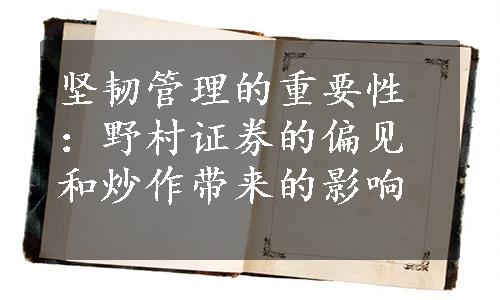 坚韧管理的重要性
：野村证券的偏见
和炒作带来的影响